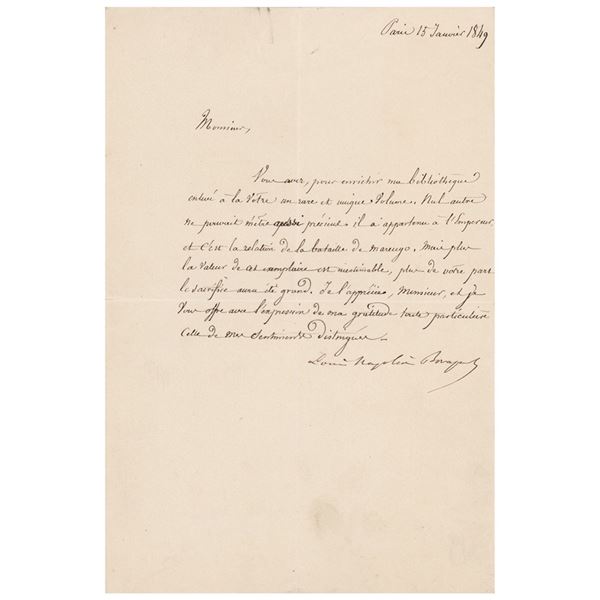 Paris 15 Janvier 1849
Monsieur,
Vous avez, pour enrichir ma bibliothèque
enlevé à la Votre un rare et unique Volume. Nul autre
ne pouvait m'être aussi précieux. il a appartenu à l'Empereur,
et c'est la relation de la bataille de marengo. Mais plus
la Valeur de cet exemplaire est inestimable, plus de votre part
le sacrifice aura été grand. Je l'apprécie, Monsieur, et je
Vous offre avec l'expression de ma gratitude toute particulière
Celle de mes Sentiments distingués.
Louis Napoléon Bonaparte